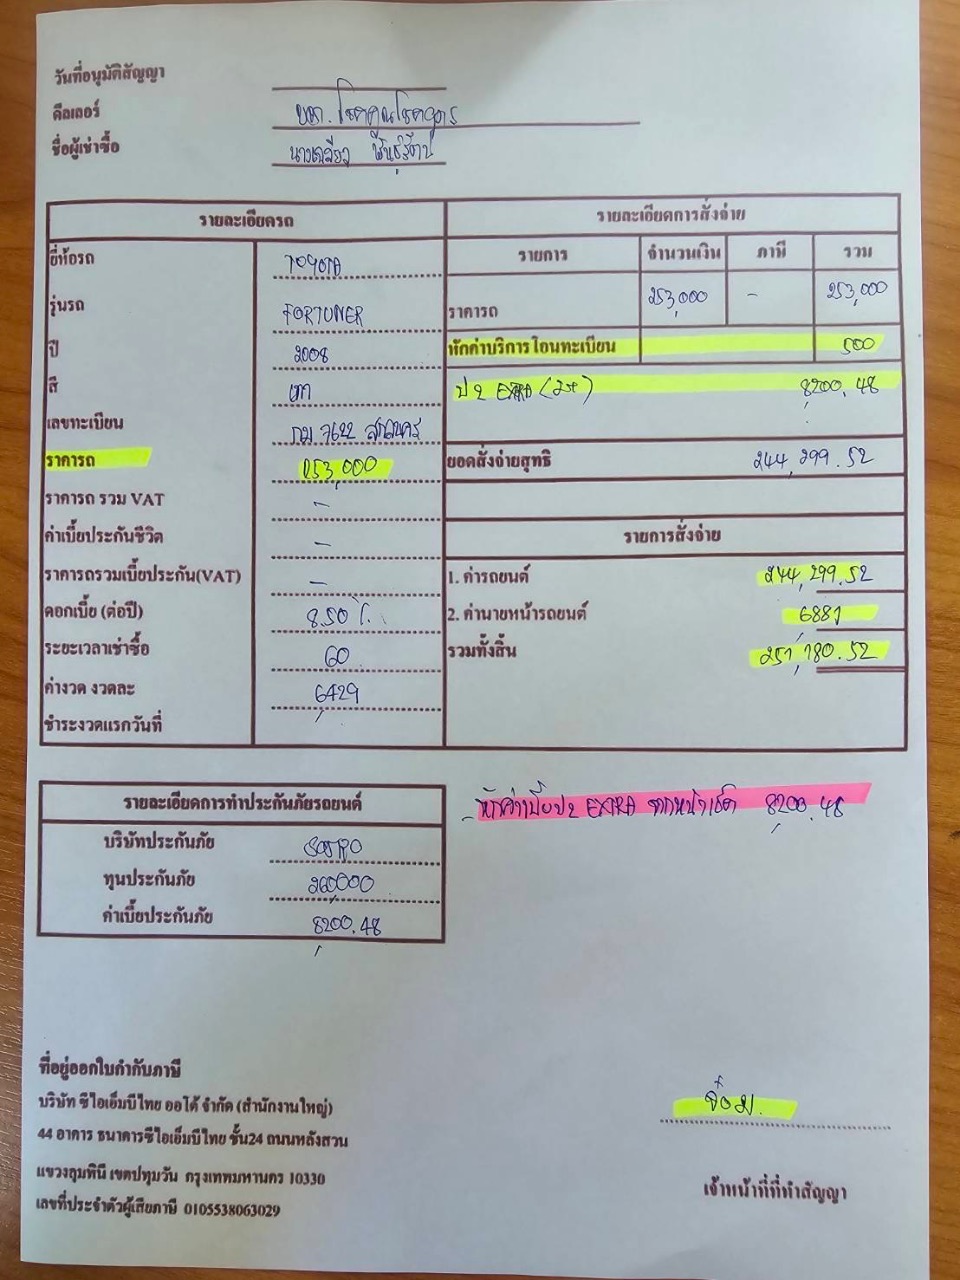 วันที่อนุมัติสัญญา
ดีลเลอร์ หจก. โชคคูณโชคถาวร
ชื่อผู้เช่าซื้อ
รายละเอียดรถ
ยี่ห้อรถ TOYOTA
รุ่นรถ FORTUNER
ปี 2008
สี เทา
เลขทะเบียน กม 7622 สกลนคร
ราคารถ 253,000
ราคารถ รวม VAT -
ค่าเบี้ยประกันชีวิต -
ราคารถรวมเบี้ยประกัน(VAT) -
ดอกเบี้ย (ต่อปี) 8.50 %
ระยะเวลาเช่าซื้อ 60
ค่างวด งวดละ 6,429
ชำระงวดแรกวันที่
รายละเอียดการสั่งจ่าย
รายการ จำนวนเงิน ภาษี รวม
ราคารถ 253,000 - 253,000
หักค่าบริการโอนทะเบียน 500
ป2 EXTRA 8,200.48
ยอดสั่งจ่ายสุทธิ 244,299.52
รายการสั่งจ่าย
1. ค่ารถยนต์ 244,299.52
2. ค่านายหน้ารถยนต์ 6,881
รวมทั้งสิ้น 251,180.52
รายละเอียดการทำประกันภัยรถยนต์
บริษัทประกันภัย
ทุนประกันภัย 260,000
ค่าเบี้ยประกันภัย 8,200.48
- หักค่าเบี้ยป2 EXTRA จากหน้าเช็ค 8,200.48
ที่อยู่ออกใบกำกับภาษี
บริษัท ซีไอเอ็มบีไทย ออโต้ จำกัด (สำนักงานใหญ่)
44 อาคาร ธนาคารซีไอเอ็มบีไทย ชั้น24 ถนนหลังสวน
แขวงลุมพินี เขตปทุมวัน กรุงเทพมหานคร 10330
เลขที่ประจำตัวผู้เสียภาษี 0105538063029
จ๋อม.
เจ้าหน้าที่ที่ทำสัญญา